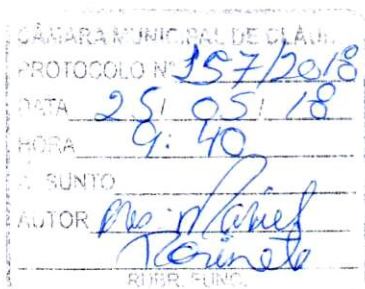 CÂMARA MUNICIPAL DE CLÁU
PROTOCOLO Nº 157/2018
DATA 25/ 05/ 18
HORA 9:40
ASSUNTO
AUTOR
RUBR. FUNC.